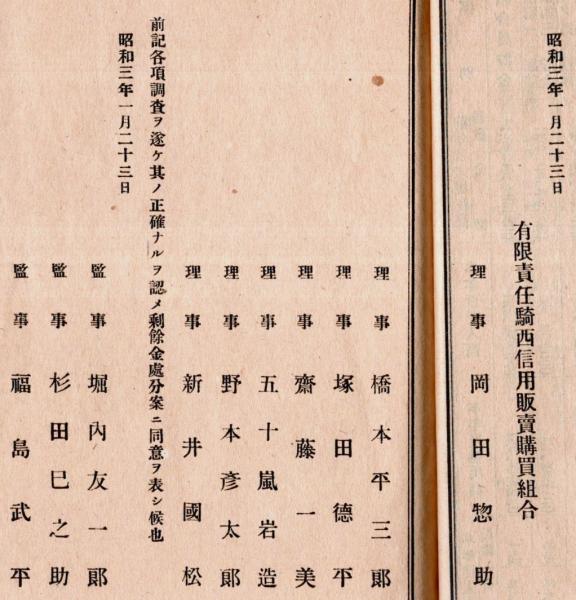 昭和三年一月二十三日
有限責任騎西信用販賣購買組合
理事 岡田惣助
理事 橋本平三郞
理事 塚田德平
理事 齋藤一美
理事 五十嵐岩造
理事 野本彥太郞
理事 新井國松
前記各項調査ヲ遂ケ其ノ正確ナルヲ認メ剩餘金處分案ニ同意ヲ表シ候也
昭和三年一月二十三日
監事 堀內友一郞
監事 杉田巳之助
監事 福島武平